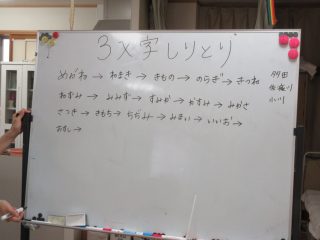 3文字しりとり
めがね → ねまき → きもの → のらぎ → きつね
ねずみ → みみず → すみか → かすみ → みかさ
さつき → きもち → ちぢみ → みまい → いいお →
おすし →
小川